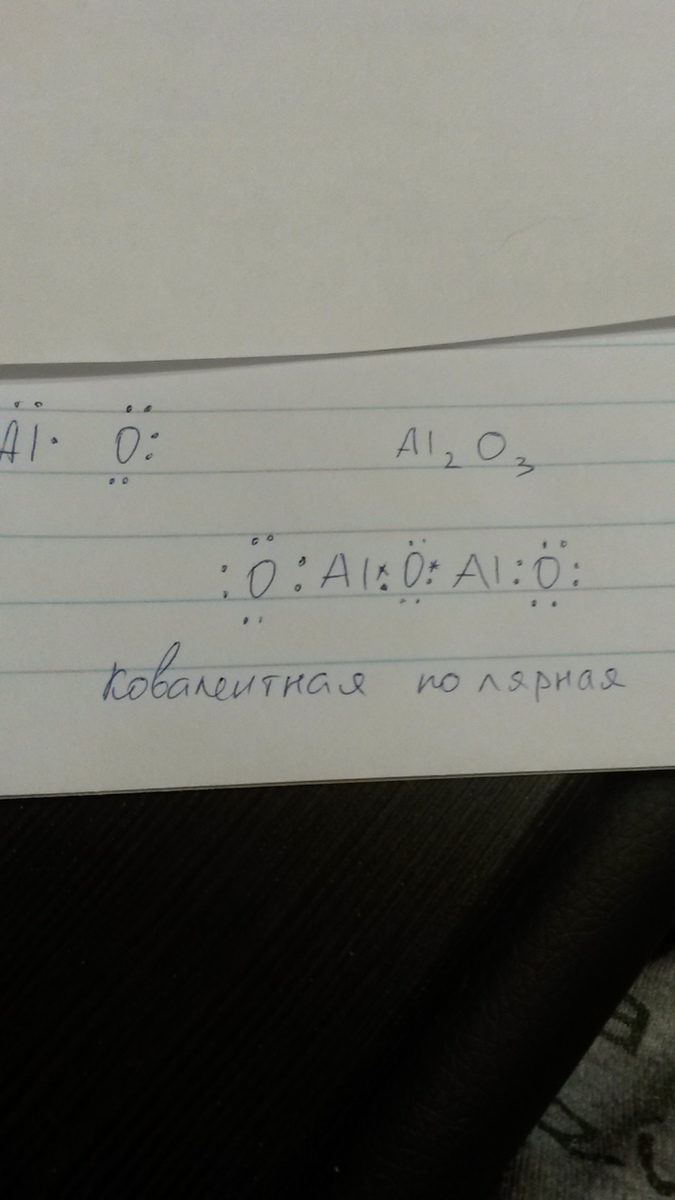 Al· :O: Al₂O₃
:O:Al:O:Al:O:
Ковалентная полярная